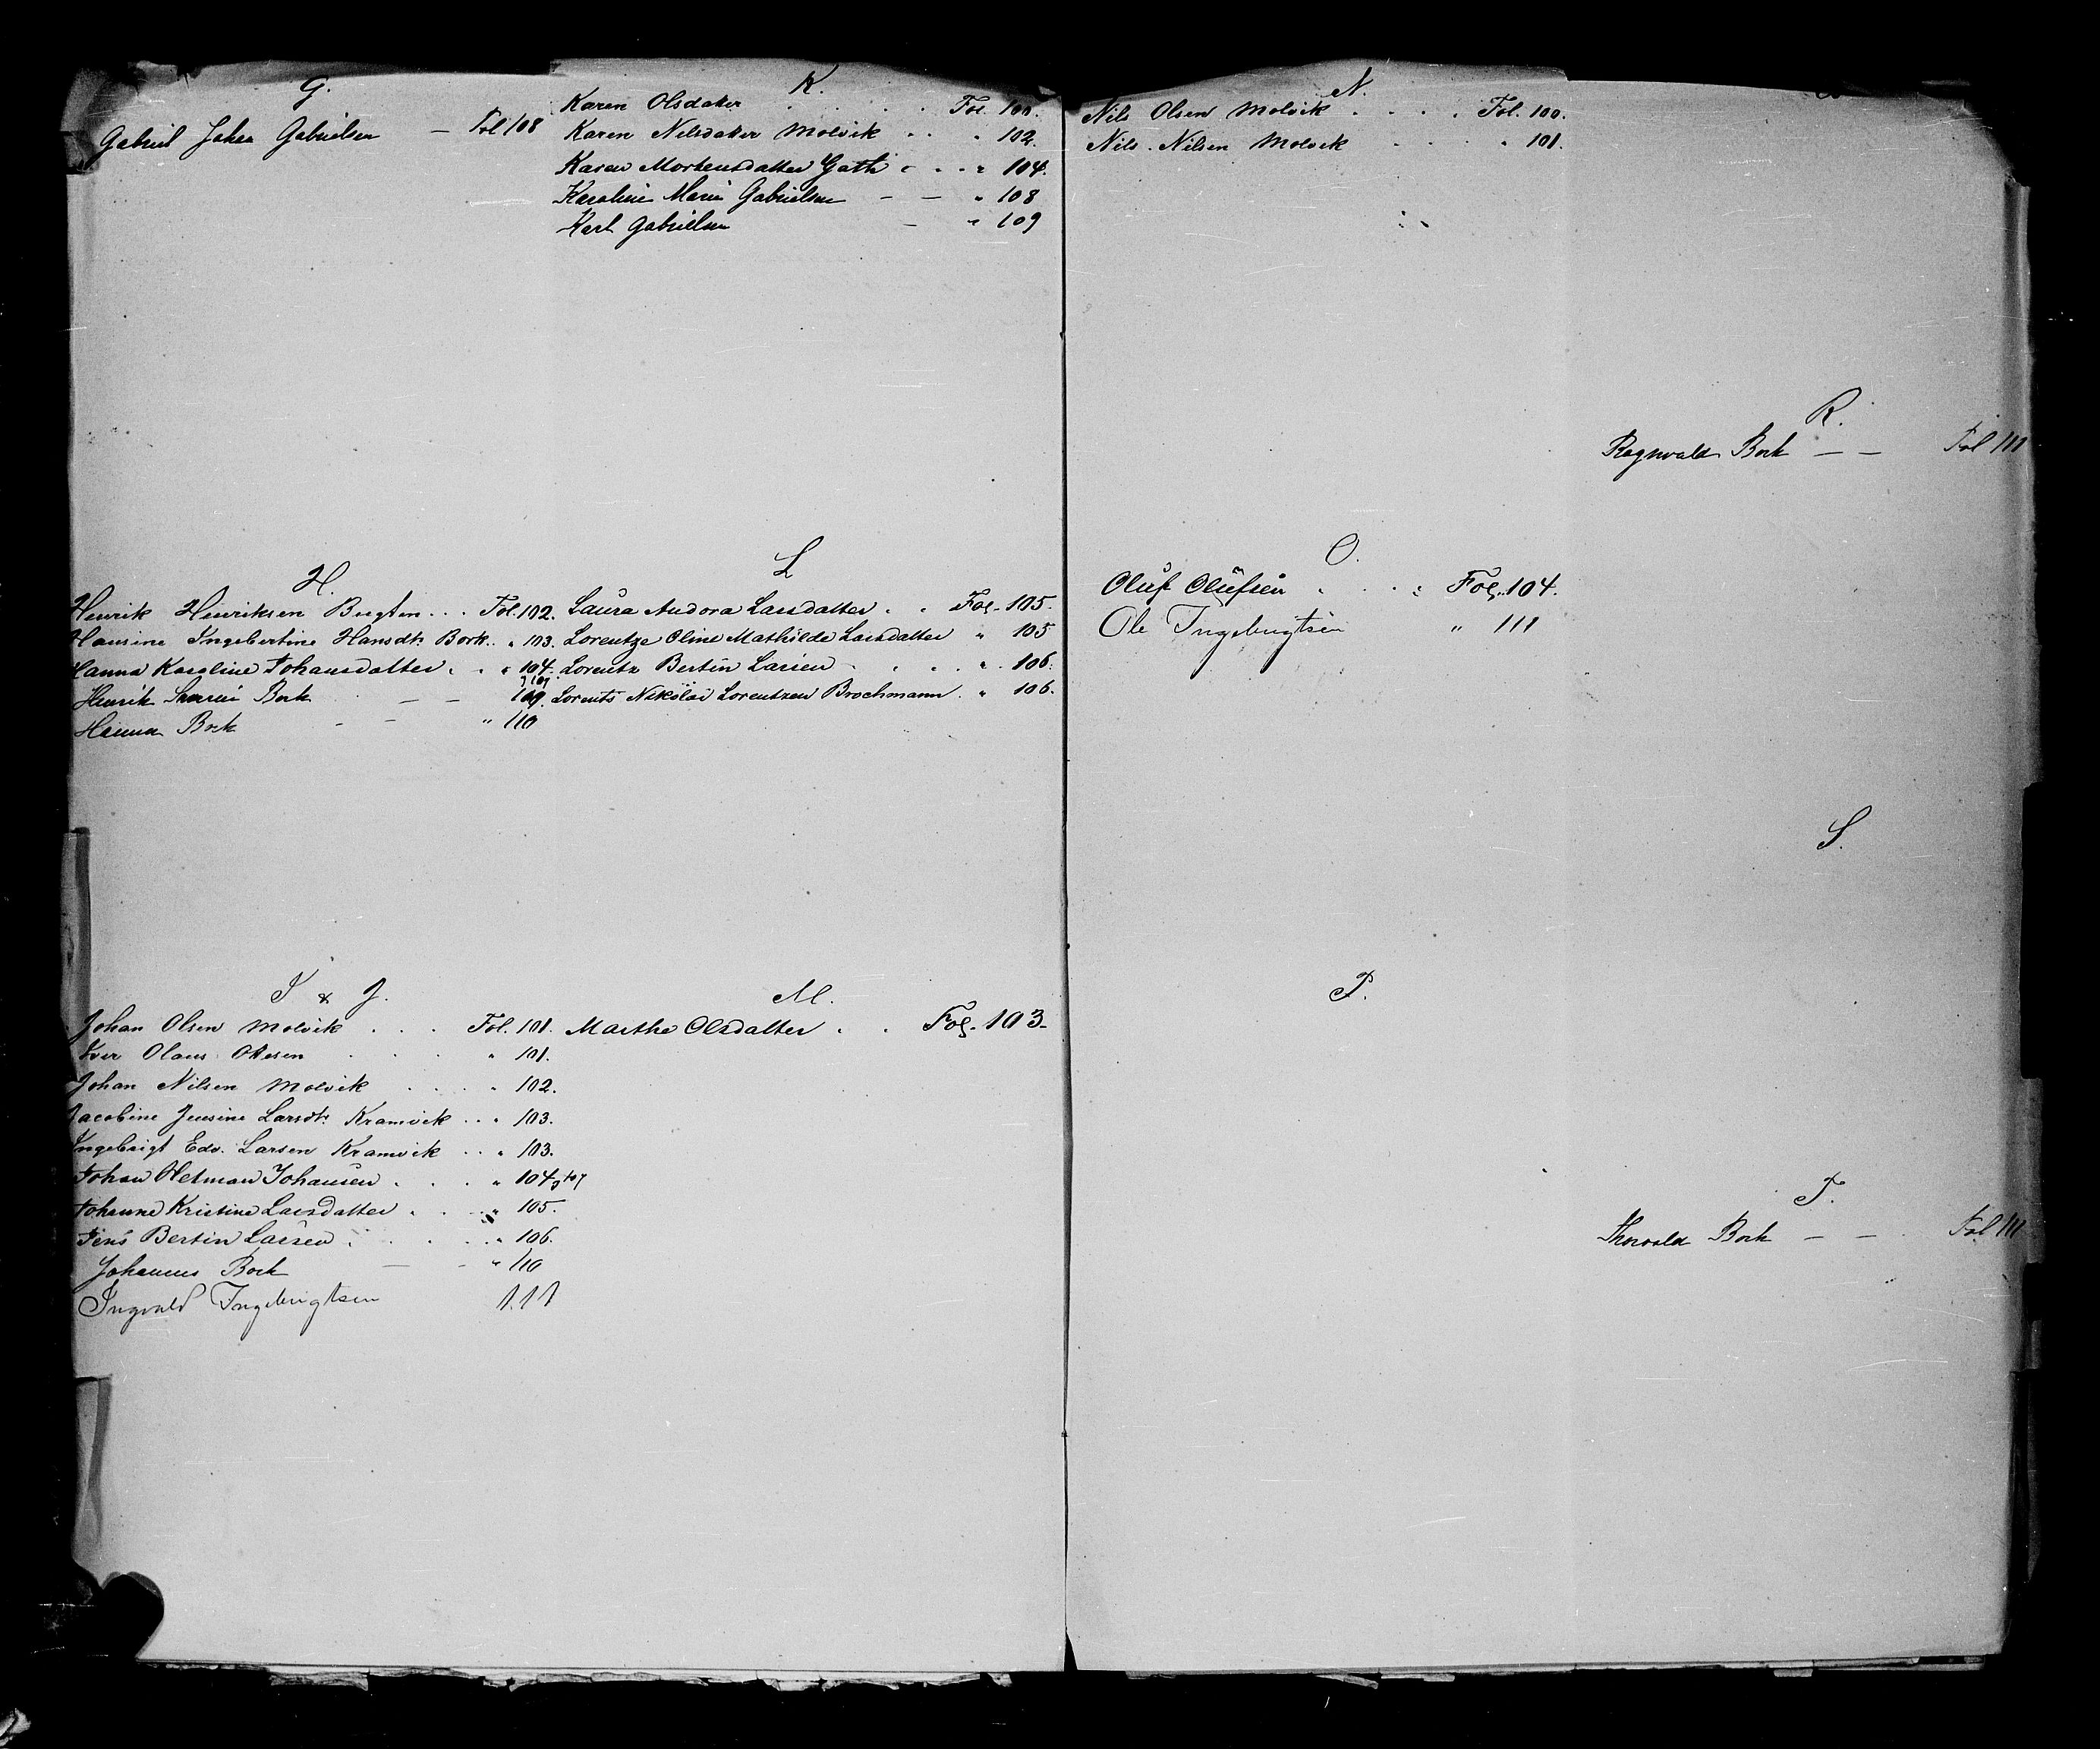 G.
Gabriel Johan Gabrielsen — Fol 108
H.
Henrik Henriksen Bugten . . . Fol. 102.
Hansine Ingebertine Hansdtr Bork . . " 103.
Hanna Karoline Johansdatter . . " 104. 107
Henrik Bork — — 109.
Hanna Bork - - " 110
I & J.
Johan Olsen Molvik . . . Fol. 101.
Iver Olaus Olesen . . . " 101.
Johan Nilsen Molvik . . . " 102.
Jacobine Jensine Larsdtr Kramvik . . " 103.
Ingebrigt Edv. Larsen Kramvik . . " 103.
Johan Hetman Johansen . . . " 104, 107
Johanne Kristine Larsdatter . . . " 105.
Jens Bertin Larsen . . . . " 106.
Johannes Bork — - " 110
Ingvald Ingebrigtsen 111
K.
Karen Olsdatter . . . . Fol. 100.
Karen Nilsdatter Molvik . . " 102.
Karen Mortensdatter Gath . . . " 104.
Karoline Marie Gabrielsen - — " 108
Karl Gabrielsen — " 109
L
Laura Andora Larsdatter . . Fol. 105.
Lorentze Oline Mathilde Larsdatter " 105
Lorentz Bertin Larsen . . . . " 106.
Lorents Nikolai Lorentzen Brochmann . " 106.
M.
Marthe Olsdatter . . Fol. 103.
N.
Nils Olsen Molvik . . . . Fol. 100.
Nils Nilsen Molvik . . . . " 101.
O.
Oluf Olufsen . . . Fol. 104.
Ole Ingebrigtsen " 111
P.
R.
Ragnvald Bork — — Fol 111
S.
T.
Thorvald Bork — — Fol 111